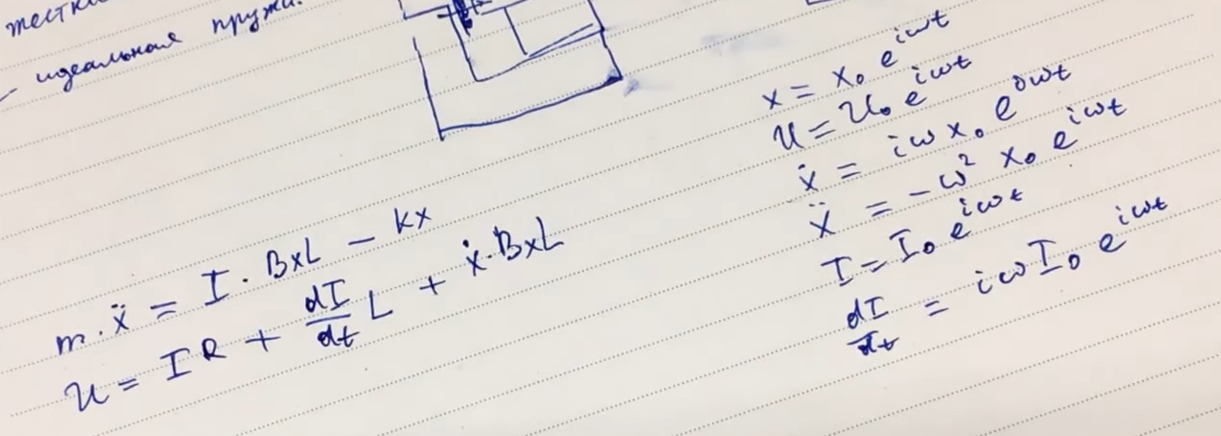 идеальная
m · ẍ = I · BxL − kx
U = IR + dI/dt L + ẋ · BxL
x = x₀ e^{iωt}
U = U₀ e^{iωt}
ẋ = iω x₀ e^{iωt}
ẍ = −ω² x₀ e^{iωt}
I = I₀ e^{iωt}
dI/dt = iω I₀ e^{iωt}